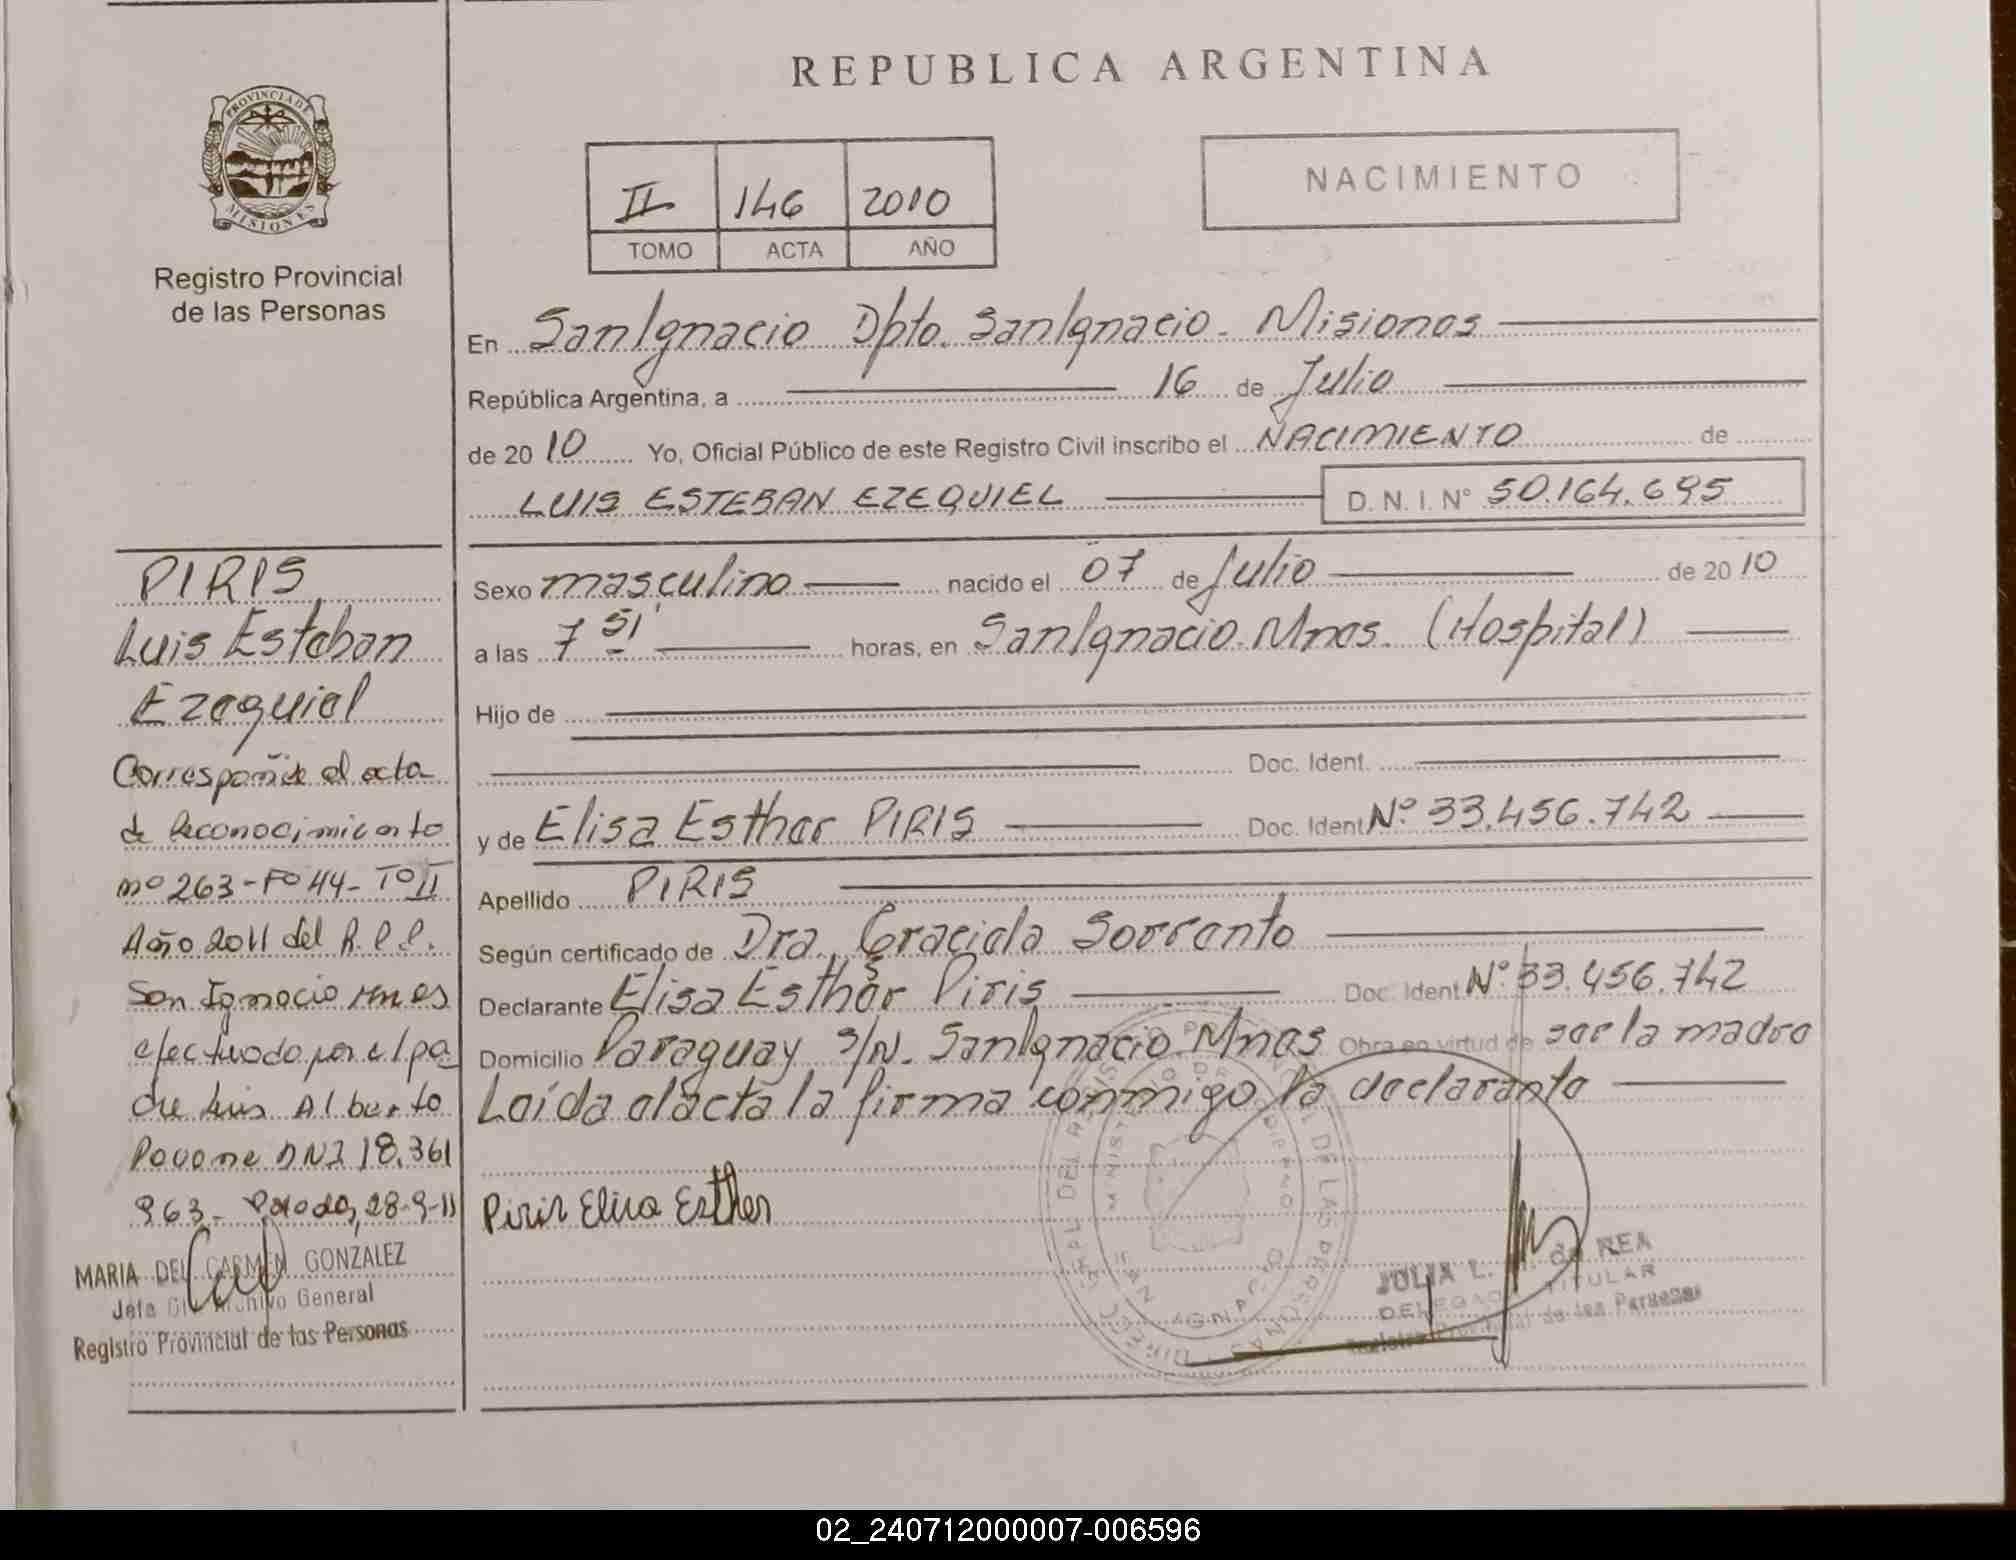 REPUBLICA ARGENTINA
PROVINCIA DE
MISIONES
Registro Provincial
de las Personas
II 146 2010
TOMO ACTA AÑO
NACIMIENTO
En SanIgnacio Dpto. SanIgnacio. Misiones
República Argentina, a 16 de Julio
de 20 10 Yo, Oficial Público de este Registro Civil inscribo el NACIMIENTO de
LUIS ESTEBAN EZEQUIEL D. N. I. Nº 50.164.695
Sexo masculino nacido el 07 de Julio de 20 10
a las 7 51' horas, en SanIgnacio. Mnes. (Hospital)
Hijo de
Doc. Ident.
y de Elisa Esther PIRIS Doc. Ident Nº 33.456.742
Apellido PIRIS
Según certificado de Dra. Graciela Sorrento
Declarante Elisa Esther Piris Doc. Ident Nº 33.456.742
Domicilio Paraguay s/N. SanIgnacio. Mnes Obra en virtud de ser la madre
Leída el acta la firma conmigo la declarante
Piris Elisa Esther
JULIA L. de REA
DELEGADA TITULAR
Registro Provincial de las Personas
PIRIS
Luis Esteban
Ezequiel
Corresponde al acta
de Reconocimiento
nº 263-Fº 44-Tº II
Año 2011 del R.P.P.
San Ignacio Mnes
efectuado por el pa
dre Luis Alberto
DNI 18.361
963- Posadas, 28-9-11
MARIA DEL CARMEN GONZALEZ
Jefa Archivo General
Registro Provincial de las Personas
02_240712000007-006596